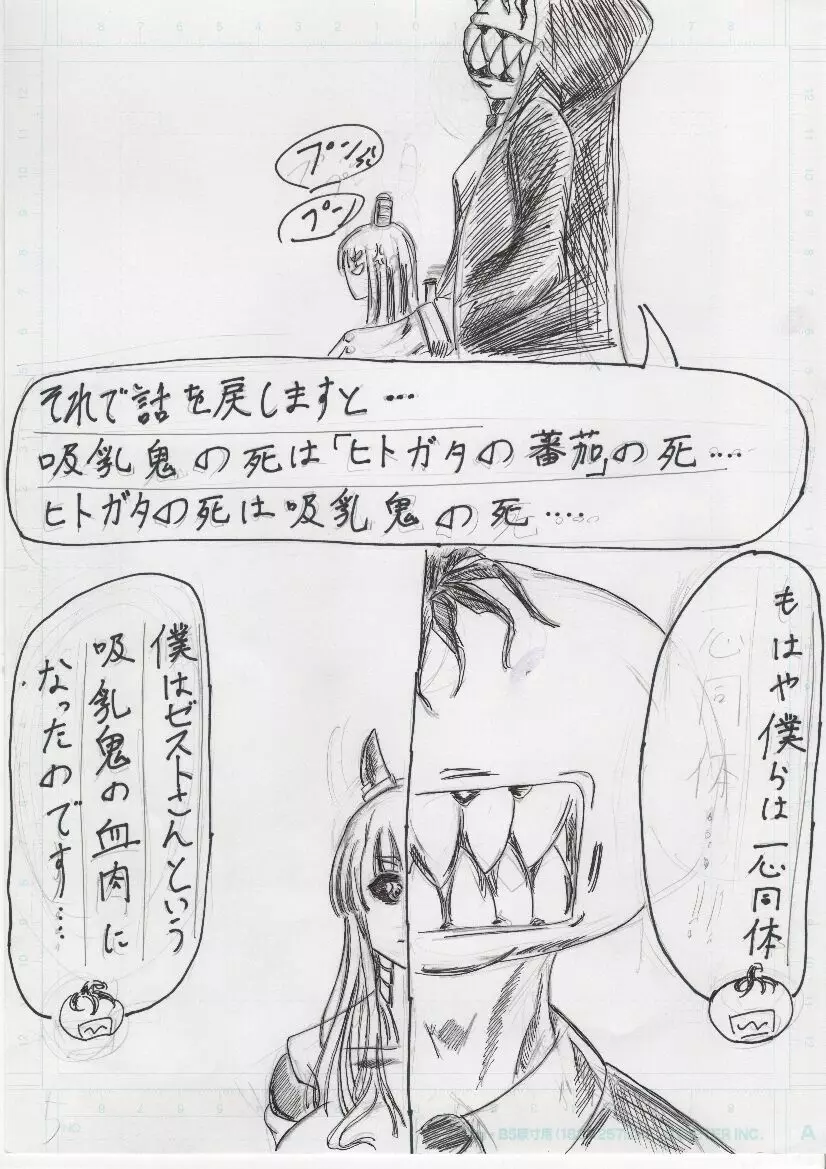 プンパ
プン
それで話を戻しますと…
吸乳鬼の死は「ヒトガタの蕃茄」の死….
ヒトガタの死は吸乳鬼の死….
もはや僕らは一心同体
僕はゼストさんという
吸乳鬼の血肉に
なったのです….
5
A